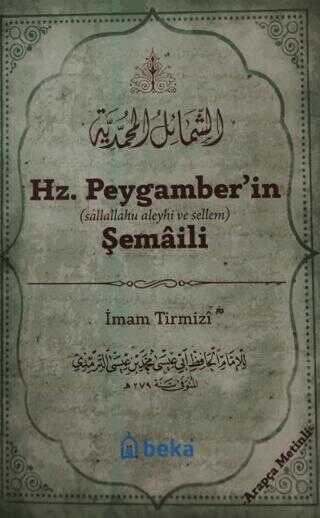 الشمائل المحمدية
Hz. Peygamber'in
(sâllallahu aleyhi ve sellem)
Şemâili
İmam Tirmizî
للإمام الحافظ أبي عيسى محمد بن عيسى الترمذي
المتوفى سنة ٢٧٩ هـ
beka
Arapça Metinli